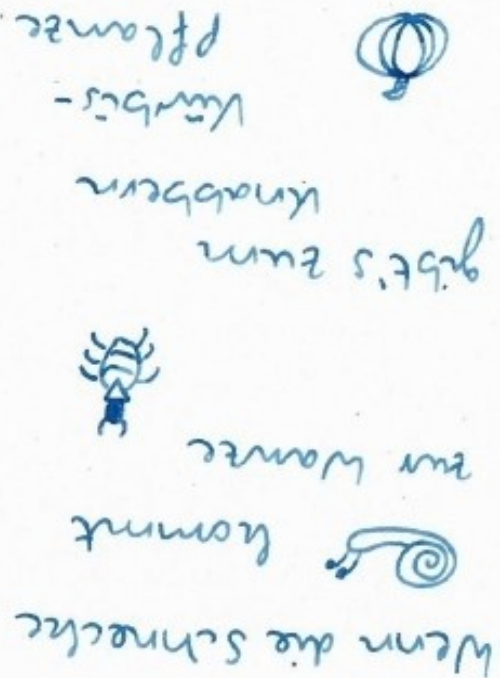 Wenn die Schnecke
kommt
zur Wanze
gibt's zum
Knabbern
Kürbis-
pflanze